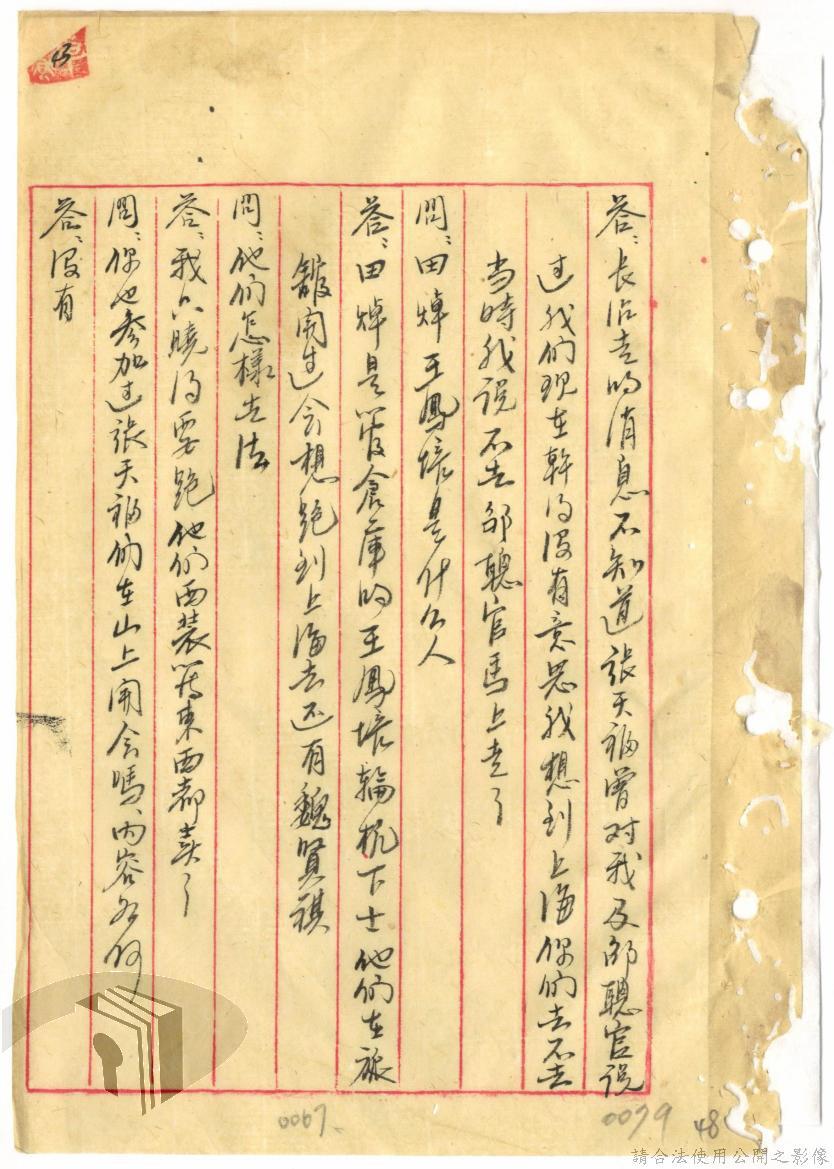 答:長治走的消息不知道張天福曾対我及邵聰官説
过我们现在幹的没有意思我想到上海你们去不去
当時我说不去邵聰官馬上走了
問:田焯王鳳培是什么人
答:田焯是管倉庫的王鳳培輪机下士他們在旅
舘開过会想跑到上海去还有魏賢祺
問:他們怎樣去法
答:我只曉得要跑他们西装等東西都卖了
問:你也参加过張天福们在山上開会嗎、内容如何
答:没有
45
0067
0079
48
請合法使用公開之影像